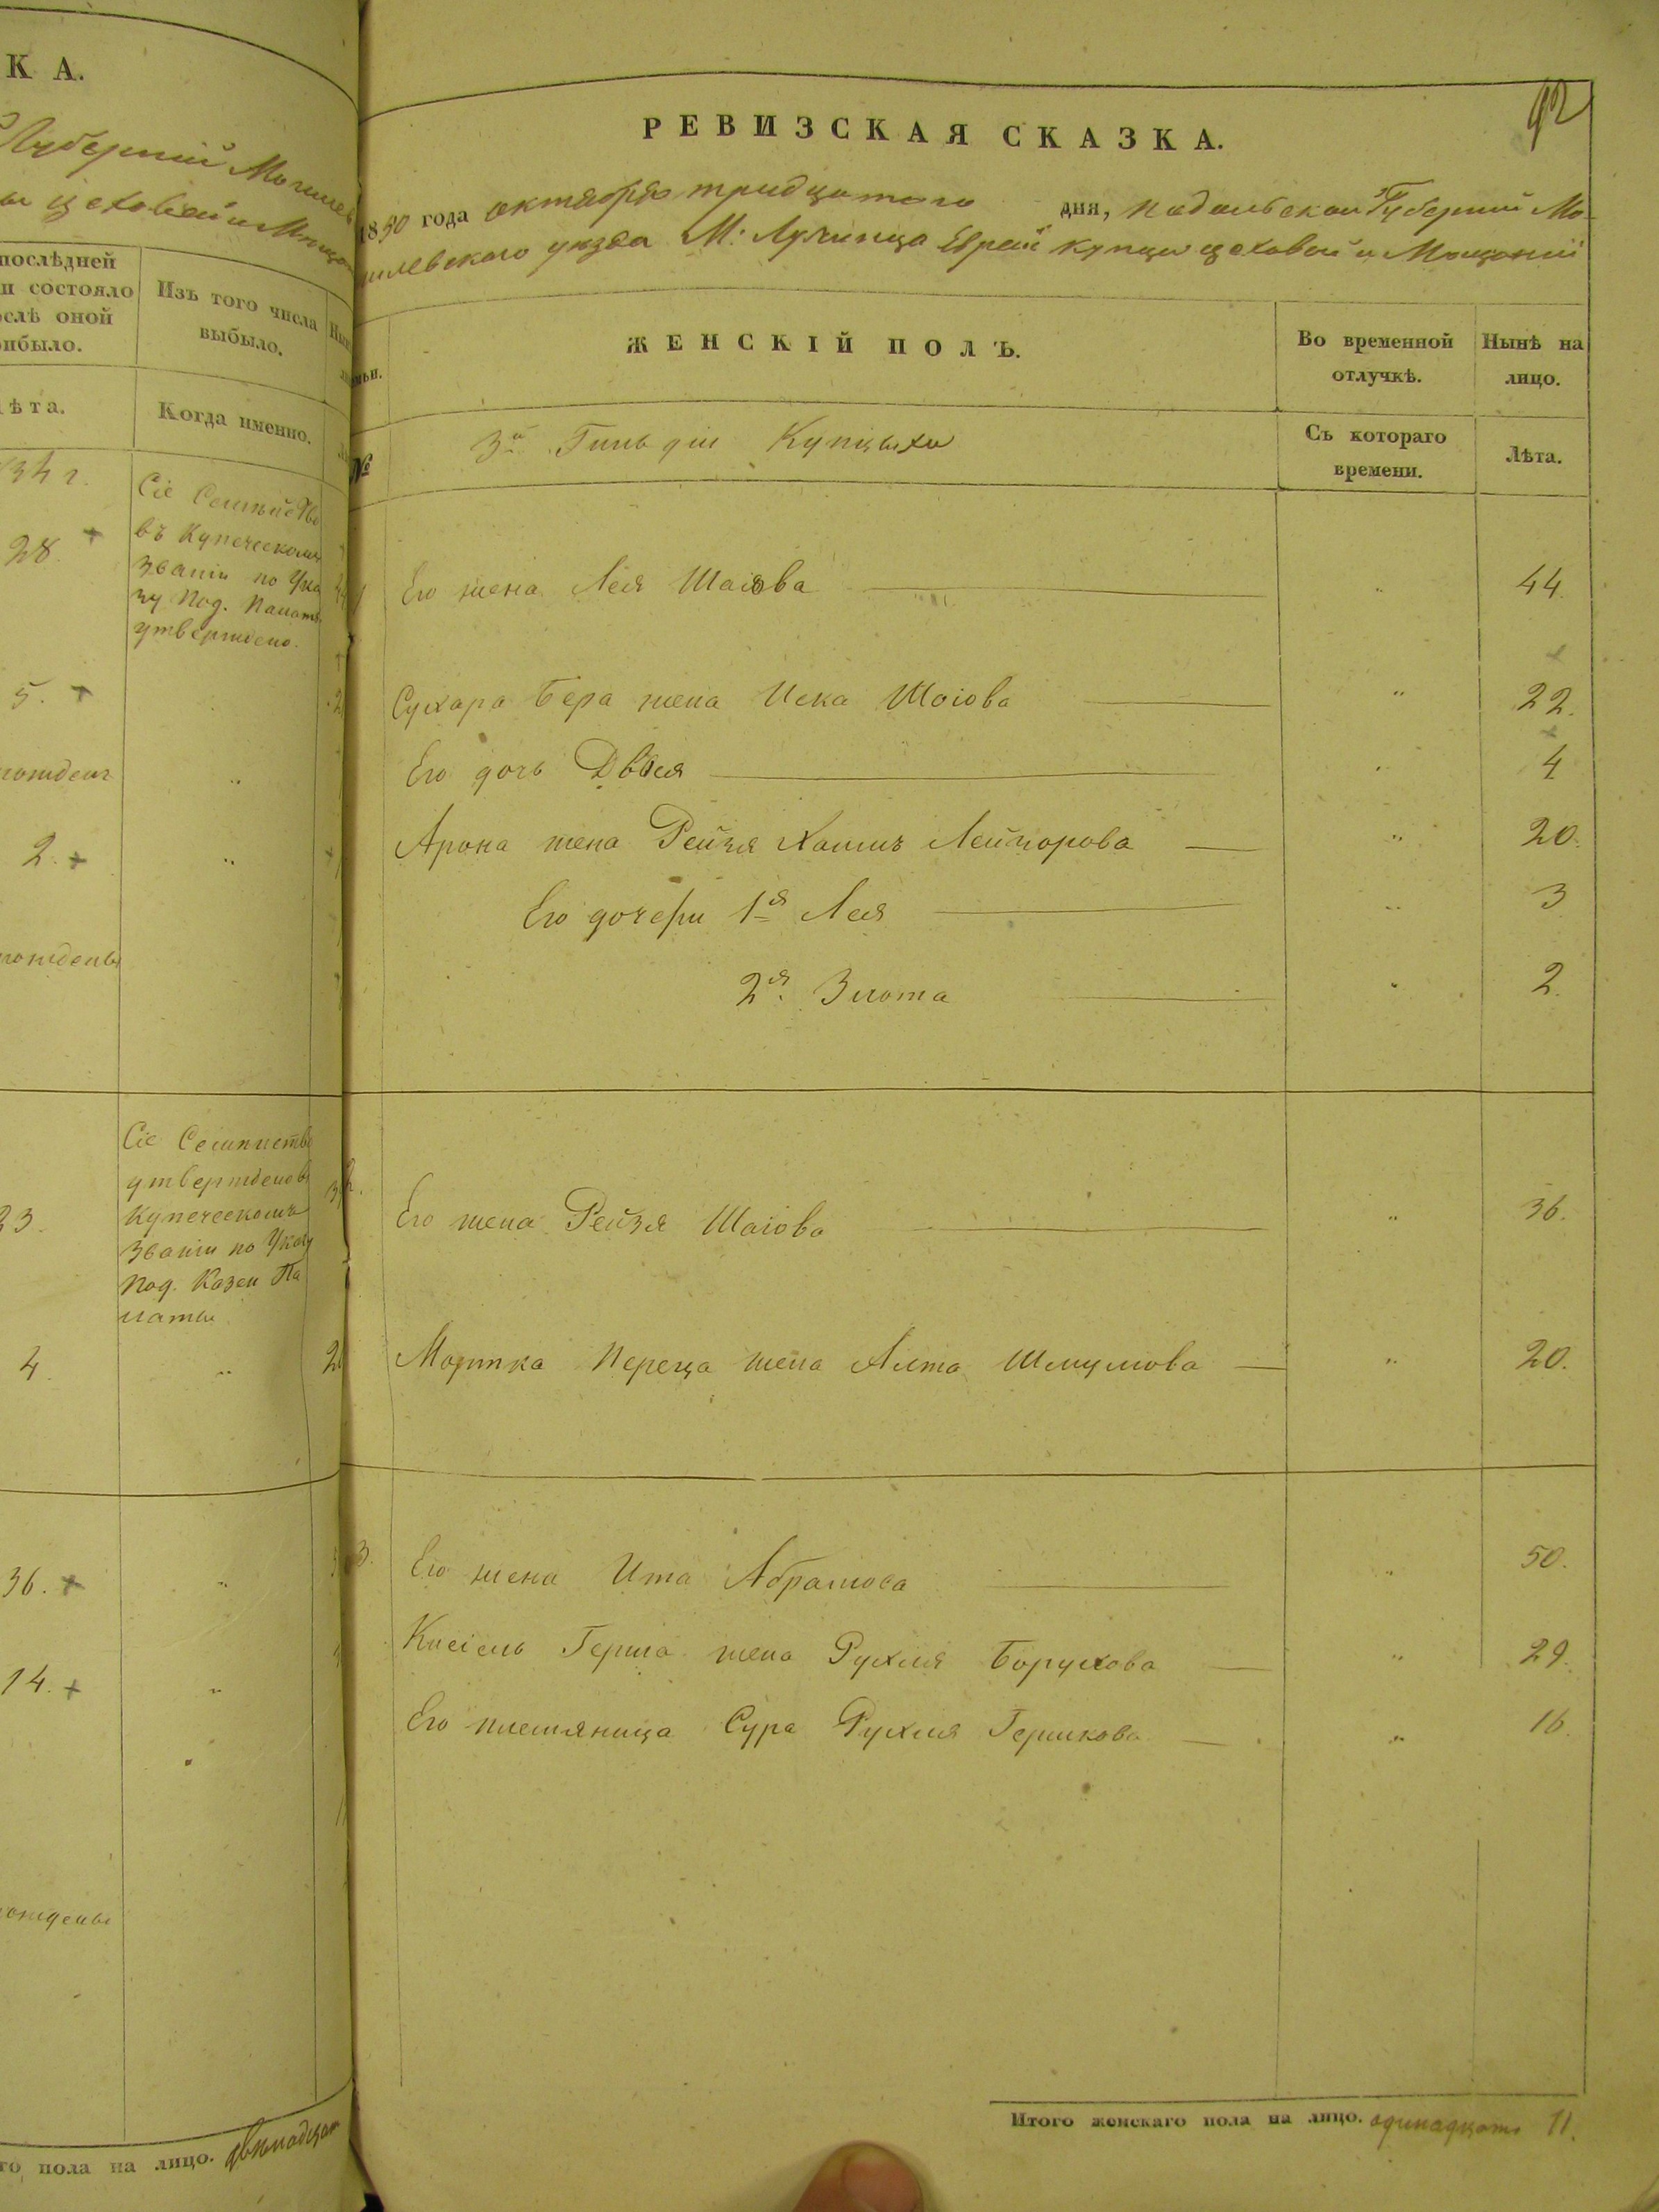 К А.
Губерніи Могилев
цеховой и Мещан
послѣдней
и состояло
слѣ оной
рибыло.
Изъ того числа
выбыло.
Лѣта.
Когда именно.
34 г.
28. +
Сіе Семейство
въ Купеческомъ
званіи по Ука
зу Под. Палаты
утверждено.
5. +
2. +
Сіе Семейство
утверждено въ
Купеческомъ
званіи по Указу
Под. Казен Па
латы
4
36. +
14. +
го пола на лицо. двенадцать
92
РЕВИЗСКАЯ СКАЗКА.
1850 года октября тридцатого дня, Подольской Губерніи Мо-
гилевского уезда М: Лучинца Еврей купцы цеховой и Мещаний
ЖЕНСКІЙ ПОЛЪ.
Во временной отлучкѣ.
Нынѣ на лицо.
№
3й Гильдіи Купцыхи
Съ котораго времени.
Лѣта.
1 Его жена Лея Шаіова 44
Сухара Бера жена Иска Шоіова 22.
Его дочь Двося 4
Арона жена Рейзя Хаимъ Лейзорова 20.
Его дочери 1я Лея 3
2я. Злота 2.
2. Его жена Рейзя Шаіова 36.
Мортка Переца жена Алта Шмулова 20.
3. Его жена Ита Абрамова 50.
Кисіель Герша жена Рухля Борухова 29.
Его племяница Сура Рухля Гершкова 16.
Итого женскаго пола на лицо. одинадцать 11.